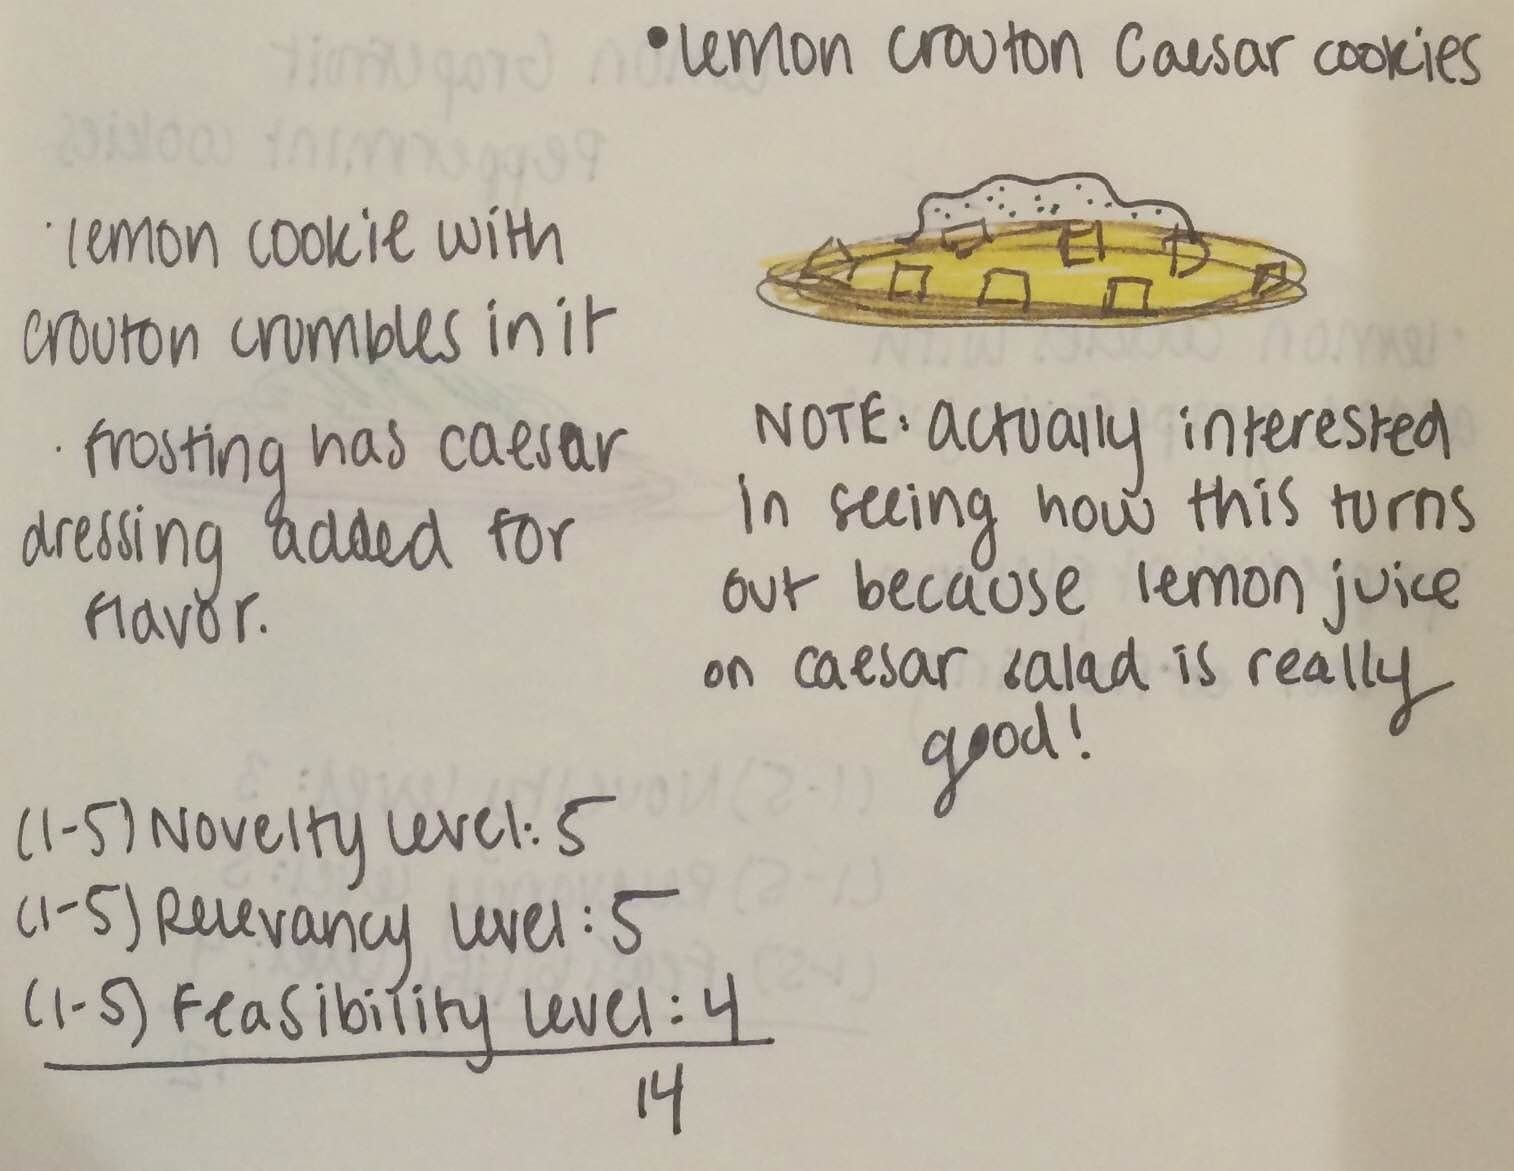 •Lemon Crouton Caesar cookies
·lemon cookie with
crouton crumbles in it
· frosting has caesar
dressing added for
flavor.
NOTE: actually interested
in seeing how this turns
out because lemon juice
on caesar salad is really
good!
(1-5) Novelty Level: 5
(1-5) Relevancy Level: 5
(1-5) Feasibility Level: 4
14